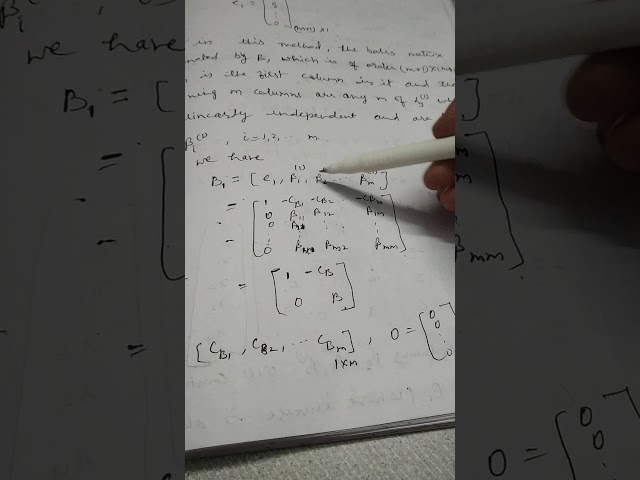 e₁ = [0 ⋮ 0] (m+1) x 1
in this method, the basis matrix
noted by B₁ which is of order (m+1)x(m+1
is the first column in it and the
ning m columns are any m of
linearly independent and are
β₁⁽¹⁾, i=1,2, ... m
we have
B₁ = [ e₁, β₁⁽¹⁾, β₂ ... βm⁽¹⁾ ]
= [ 1 -CB₁ -CB₂ -CBm
0 β₁₁ β₁₂ β₁m
0 β₂₁ ⋮ ⋮
⋮
0 βm₁ βm₂ βmm ]
= [ 1 -CB
0 B ]
[CB₁, CB₂, ... CBm] 1xm , 0 = [ 0 0 ⋮ 0